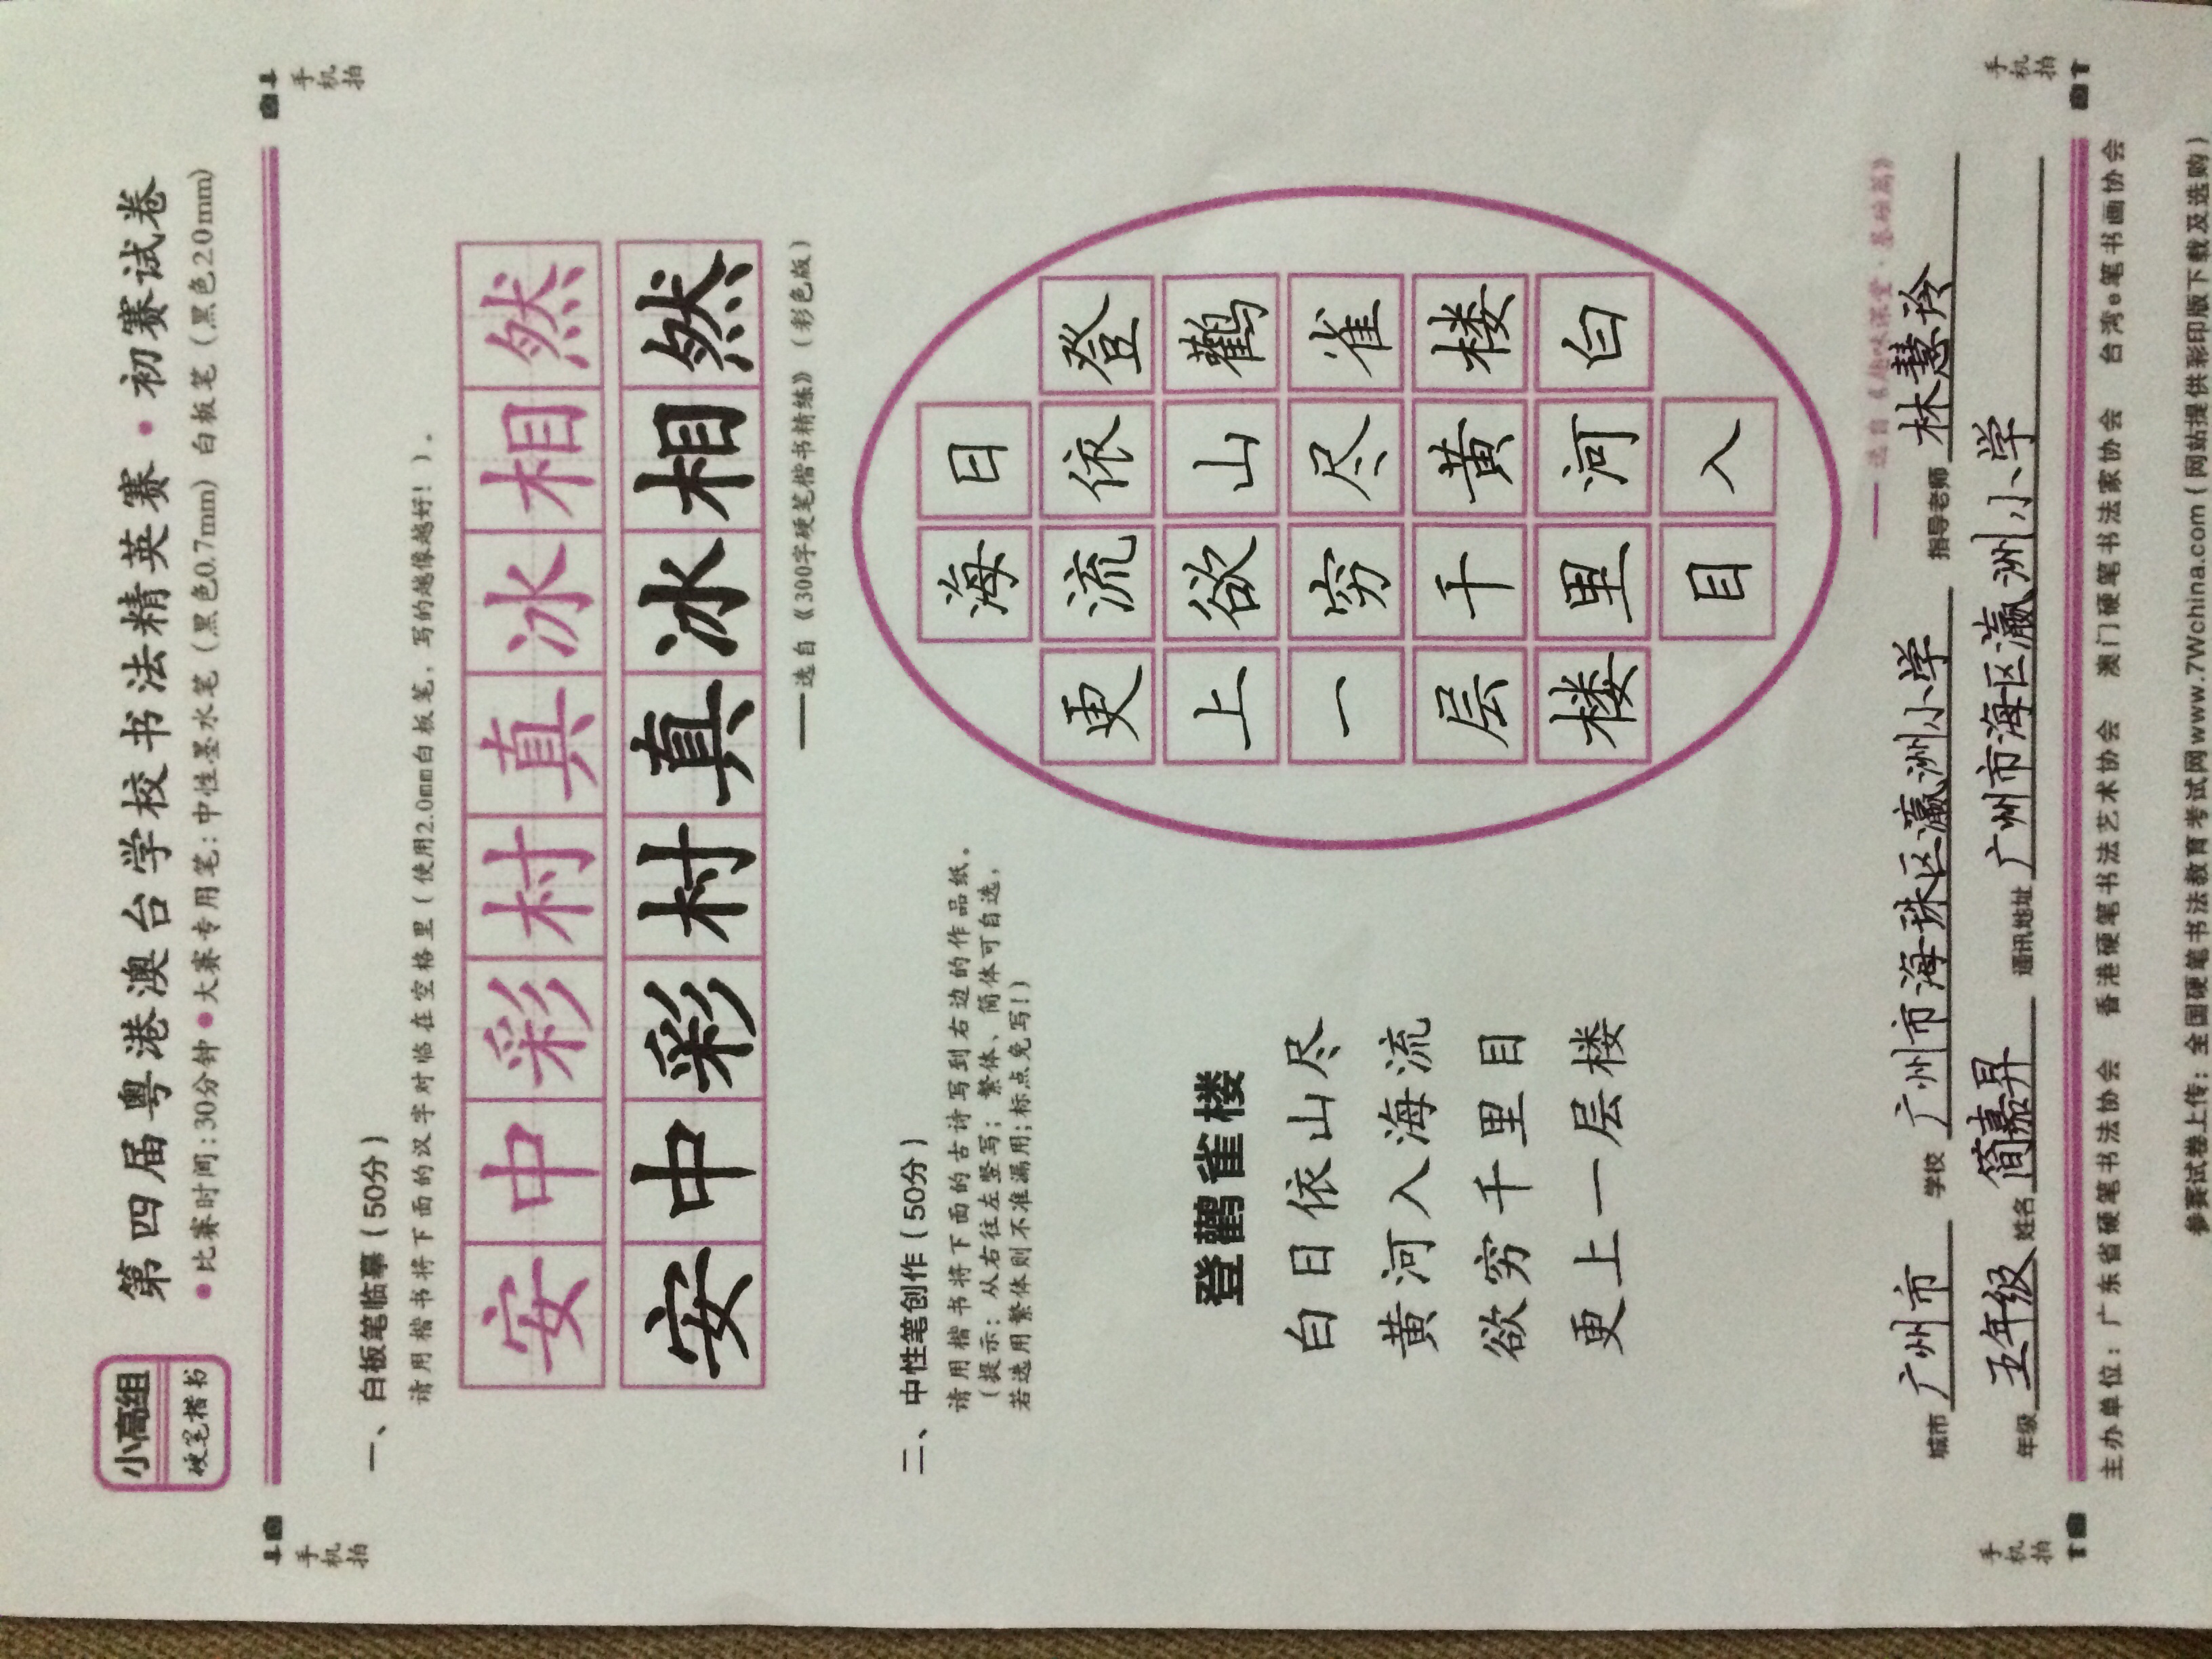 小高组
硬笔楷书
第四届粤港澳台学校书法精英赛·初赛试卷
●比赛时间:30分钟●大赛专用笔:中性墨水笔(黑色0.7mm) 白板笔(黑色2.0mm)
手机拍
手机拍
一、白板笔临摹(50分)
请用楷书将下面的汉字对临在空格里(使用2.0mm白板笔,写的越像越好!)。
安中彩村真冰相然
安中彩村真冰相然
——选自《300字硬笔楷书精练》(彩色版)
二、中性笔创作(50分)
请用楷书将下面的古诗写到右边的作品纸。
(提示:从右往左竖写;繁体、简体可自选,
若选用繁体则不准漏用;标点免写!)
登鹳雀楼
白日依山尽
黄河入海流
欲穷千里目
更上一层楼
登鹳雀楼白
日依山尽黄河入
海流欲穷千里目
更上一层楼
——选自《趣味课堂·基础篇》
城市 广州市 学校 广州市海珠区瀛洲小学 指导老师 林慧玲
年级 五年级 姓名 简嘉昇 通讯地址 广州市海区瀛洲小学
手机拍
手机拍
主办单位:广东省硬笔书法协会 香港硬笔书法艺术协会 澳门硬笔书法家协会 台湾e笔书画协会
参赛试卷上传:全国硬笔书法教育考试网www.7Wchina.com(网站提供彩印版下载及选购)